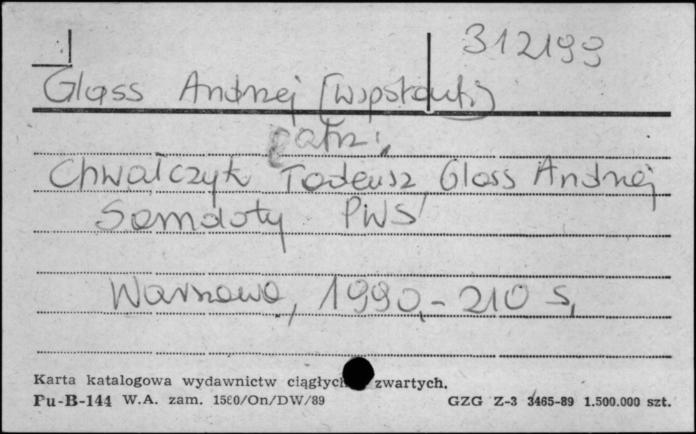 312199
Glass Andrzej (współaut.)
patrz:
Chwałczyk Tadeusz, Glass Andrzej
Samoloty PWS
Warszawa, 1990. - 210 s.
Karta katalogowa wydawnictw ciągłych zwartych.
Pu-B-144 W.A. zam. 1580/On/DW/89 GZG Z-3 3465-89 1.500.000 szt.